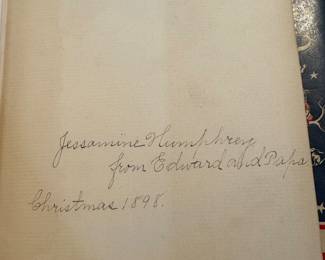 Jessamine Humphrey
from Edward and Papa
Christmas 1898.